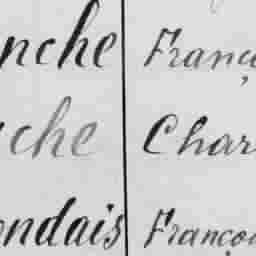 nche Franç
che Char
ondais Françoi